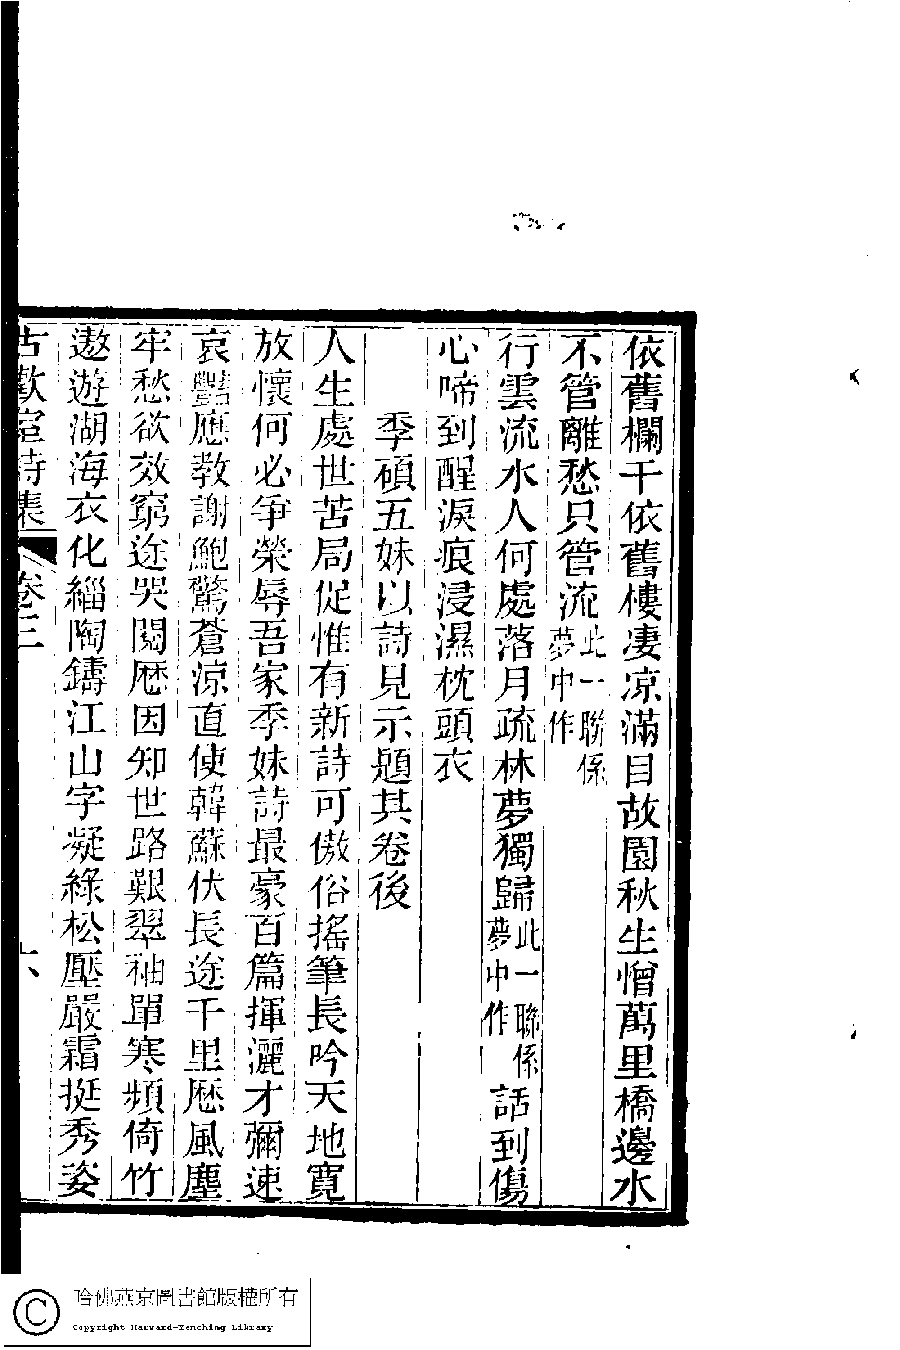 依舊欄干依舊樓凄凉滿目故園秋生憎萬里橋邊水
不管離愁只管流此一聯係夢中作
行雲流水人何處落月疏林夢獨歸此一聯係夢中作話到傷
心啼到醒淚痕浸濕枕頭衣
季碩五妹以詩見示題其卷後
人生處世苦局促惟有新詩可傲俗搖筆長吟天地寬
放懷何必爭榮辱吾家季妹詩最豪百篇揮灑才彌速
哀豔應教謝鮑驚蒼涼直使韓蘇伏長途千里歷風塵
牢愁欲效窮途哭閱歷因知世路艱翠袖單寒頻倚竹
遨遊湖海衣化緇陶鑄江山字凝綠松壓嚴霜挺秀姿
古歡室詩集 卷三 六
哈佛燕京圖書館版權所有
Copyright Harvard-Yenching Library